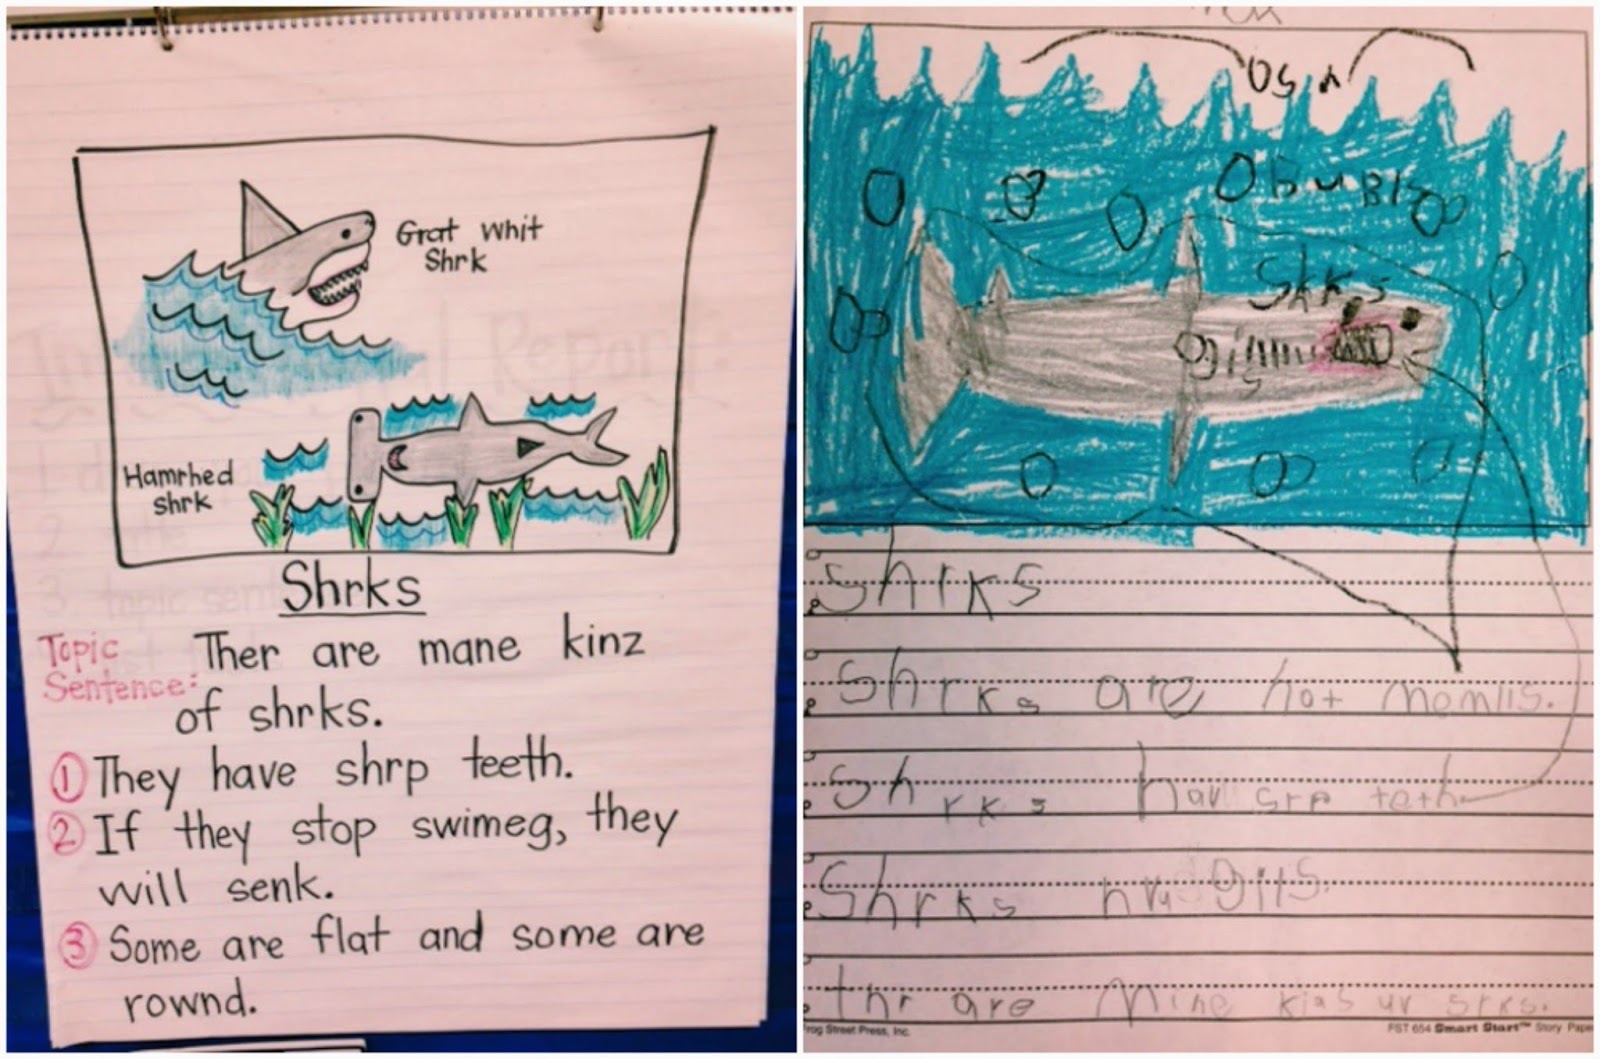 Grat Whit
Shrk
Hamrhed
shrk
Shrks
Topic
Sentence:
Ther are mane kinz
of shrks.
1 They have shrp teeth.
2 If they stop swimeg, they
will senk.
3 Some are flat and some are
rownd.
Osin
bubls
Shrks
Shrks are not momlls.
Shrks hav srp teth
Shrks gils.
thr are Mine
Frog Street Press, Inc.
FST 654 Smart Start™ Story Pape